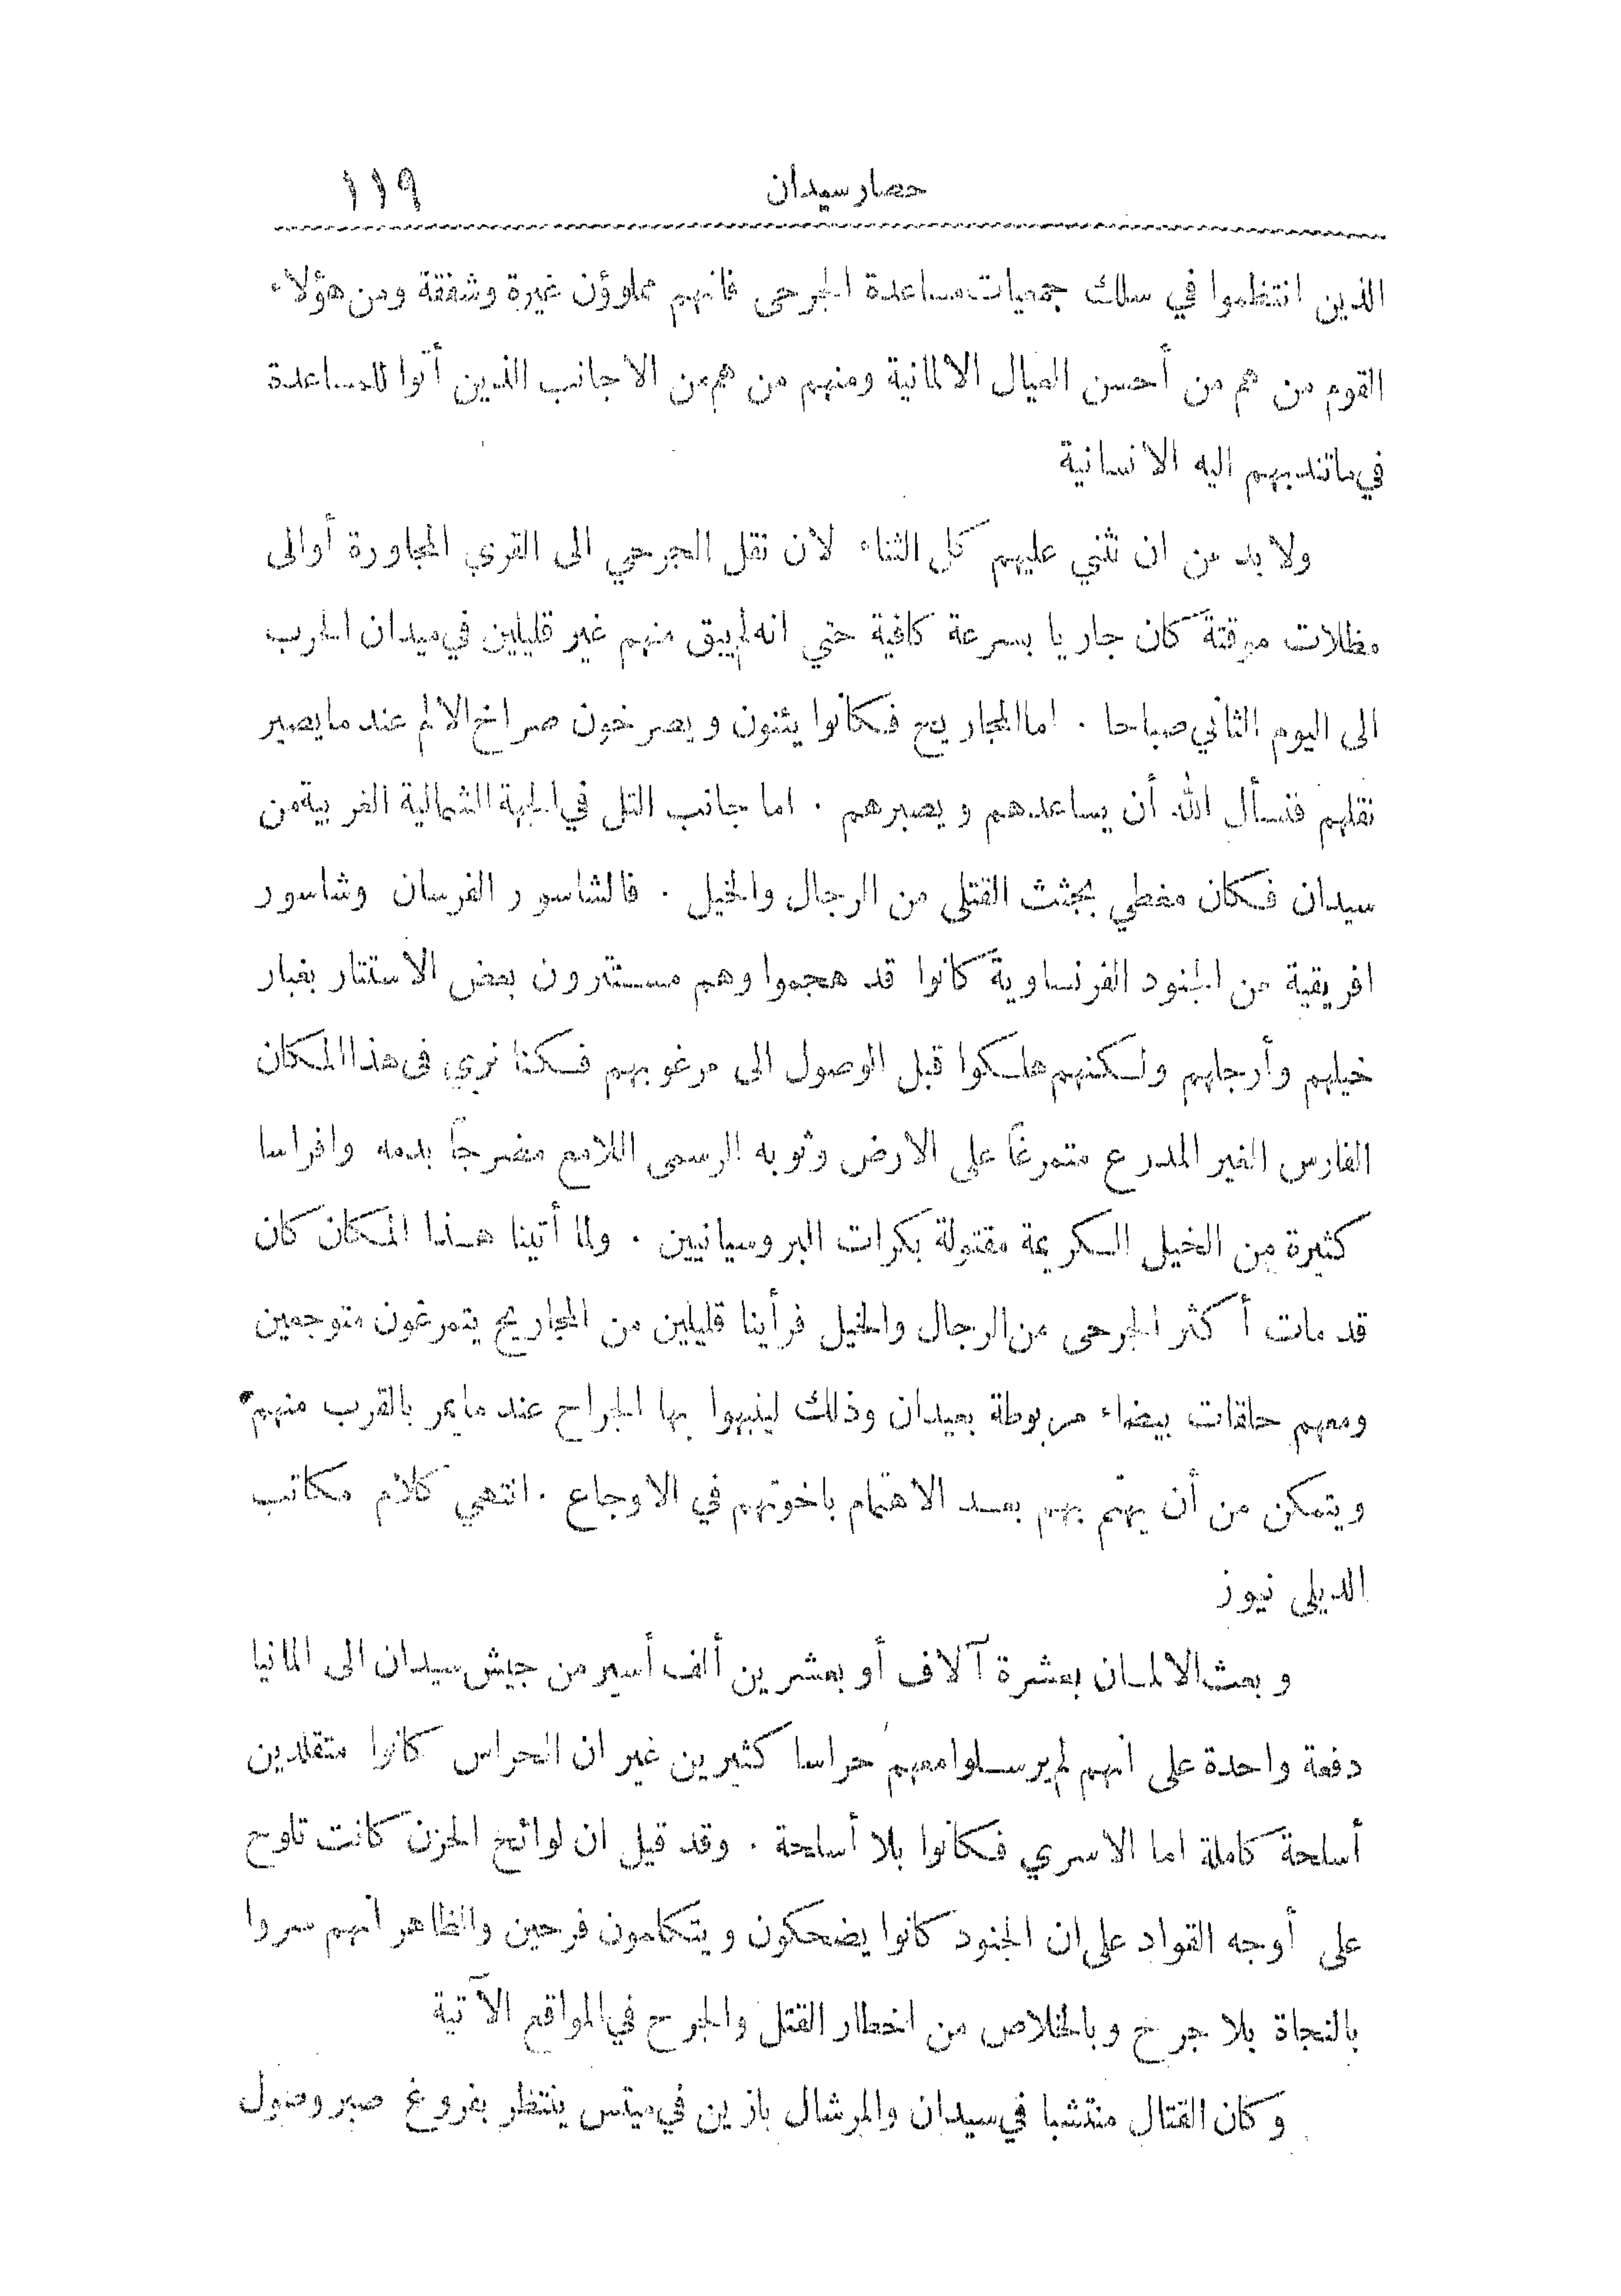 حصار سيدان ١١٩
الذين انتظموا في سلك جمعيات مساعدة الجرحى فانهم مملوؤن غيرة وشفقة ومن هؤلاء
القوم من هم من أحسن العيال الالمانية ومنهم من هم من الاجانب الذين أتوا للمساعدة
في ما تندبهم اليه الانسانية
ولا بد من ان نثني عليهم كل الثناء لان نقل الجرحي الى القري المجاورة أوالى
مظلات موقتة كان جاريا بسرعة كافية حتي انه لم يبق منهم غير قليلين في ميدان الحرب
الى اليوم الثاني صباحا . اما المجاريح فكانوا يئنون ويصرخون صراخ الالم عند ما يصير
نقلهم فنسأل الله أن يساعدهم ويصبرهم . اما جانب التل في الجهة الشمالية الغربية من
سيدان فكان مغطي بجثث القتلى من الرجال والخيل . فالشاسور الفرسان وشاسور
افريقية من الجنود الفرنساوية كانوا قد هجموا وهم مستترون بعض الاستتار بغبار
خيلهم وأرجلهم ولكنهم هلكوا قبل الوصول الى مرغوبهم فكنا نري في هذا المكان
الفارس الغير المدرع متمرغاً على الارض وثوبه الرسمى اللامع مضرجاً بدمه وافراسا
كثيرة من الخيل الكريمة مقتولة بكرات البروسيانيين . ولما أتينا هذا المكان كان
قد مات أكثر الجرحى من الرجال والخيل فرأينا قليلين من المجاريح يتمرغون متوجعين
ومعهم حلقات بيضاء مربوطة بعيدان وذلك لينبهوا بها الجراح عند ما يمر بالقرب منهم
ويتمكن من أن يهتم بهم بعد الاهتمام باخوتهم في الاوجاع . انتهي كلام مكاتب
الديلى نيوز
وبعث الالمان بعشرة آلاف أو بعشرين ألف أسير من جيش سيدان الى المانيا
دفعة واحدة على انهم لم يرسلوا معهم حراسا كثيرين غير ان الحراس كانوا متقلدين
أسلحة كاملة اما الاسري فكانوا بلا أسلحة . وقد قيل ان لوائح الحزن كانت تلوح
على أوجه القواد على ان الجنود كانوا يضحكون ويتكلمون فرحين والظاهر انهم سروا
بالنجاة بلا جرح وبالخلاص من اخطار القتل والجرح في المواقع الآتية
وكان القتال منتشبا في سيدان والمرشال بازين في ميتس ينتظر بفروغ صبر وصول